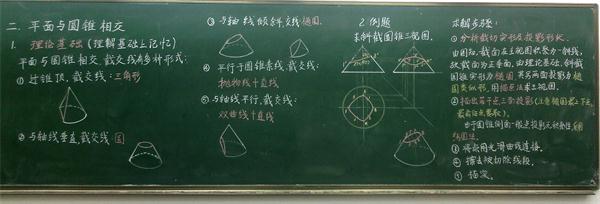 二. 平面与圆锥相交
1. 理论基础(理解基础上记忆)
平面与圆锥相交,截交线有多种形式:
① 过锥顶,截交线:三角形
② 与轴线垂直,截交线:圆
③ 与轴线倾斜,交线:椭圆
④ 平行于圆锥素线,截交线:
抛物线+直线
⑤ 与轴线平行,截交线:
双曲线+直线
2. 例题
求斜截圆锥三视图.
求解步骤:
① 分析截切实形及投影形状.
由图知,截面在主视图积聚为一斜线,
故截面为正垂面,由理论基础,斜截
圆锥实形为椭圆,其另两面投影为椭
圆类似形,用描点法求三视图.
② 描出若干点三面投影(注意椭圆最上下点,
最前后点要取).
由于圆锥侧面一般点投影无积聚性,
③ 将点用光滑曲线连接.
④ 擦去被切除线段.
⑤ 描深.